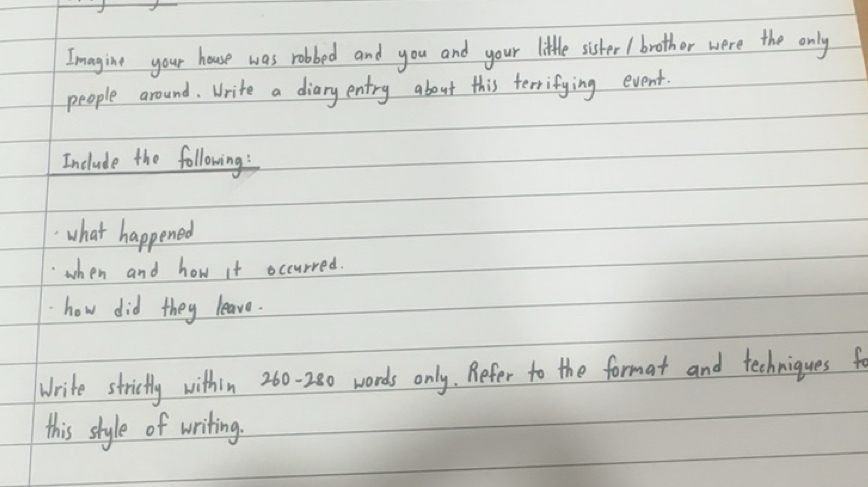 Imagine your house was robbed and you and your little sister / brother were the only
people around. Write a diary entry about this terrifying event.
Include the following:
· what happened
· when and how it occurred.
· how did they leave.
Write strictly within 260-280 words only. Refer to the format and techniques fo
this style of writing.